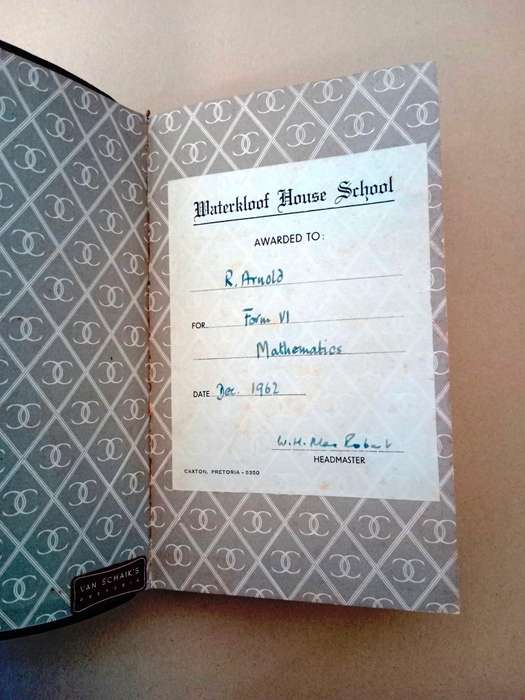 Waterkloof House School
AWARDED TO:
R. Arnold
FOR Form VI
Mathematics
DATE Dec. 1962
W. H. Mac Robert
HEADMASTER
CAXTON, PRETORIA - 5350
VAN SCHAIK'S
PRETORIA